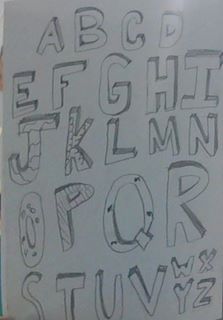 A B C D
E F G H I
J K L M N
O P Q R
S T U V W X
Y Z